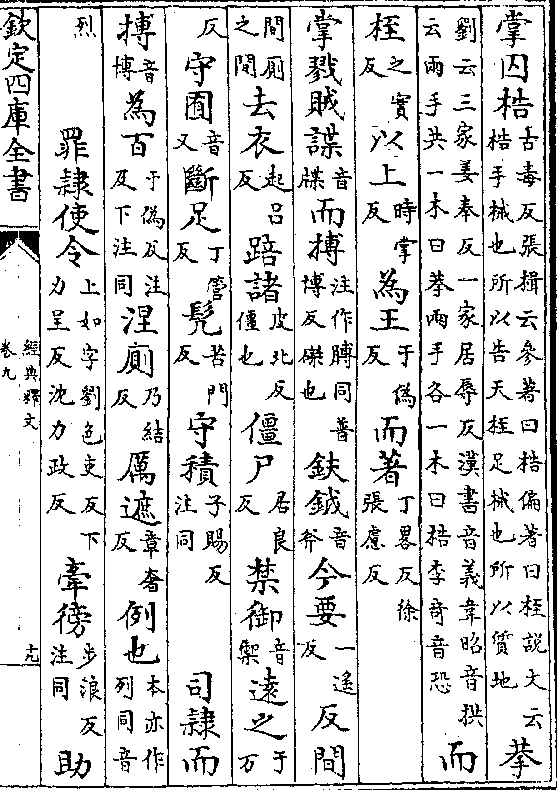 掌囚梏古毒反張揖云參著曰梏偏著曰桎説文云梏手械也所以告天桎足械也所以質地拲
劉云三家姜奉反一家居辱反漢書音義韋昭音拱云兩手共一木曰拲兩手各一木曰梏李奇音恐而
桎之實反以上時掌反為王于偽反而著丁畧反徐張慮反
掌戮賊諜音牒而搏注作膊同普博反磔也鈇鉞音斧今要一遙反反間
間廁之間去衣起呂反踣諸皮北反僵也僵尸居良反禁御音禦遠之于万
反守囿音又斷足丁管反髡苦門反守積子賜反注同司隷而
搏音博為百于偽反注及下注同涅廁乃結反厲遮章奢反例也本亦作列同音
烈罪隷使令上如字劉色吏反下力呈反沈力政反牽徬步浪反注同助
欽定四庫全書
經典釋文
卷九
十九